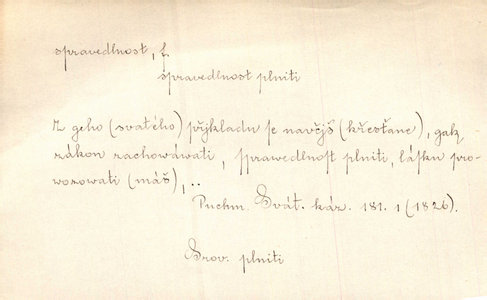 spravedlnost, f.
spravedlnost plniti
Z geho (svatého) přjkladu se navčjš (křesťane), gak
zákon zachowáwati, sprawedlnost plniti, lásku pro-
wozowati (máš), ..
Puchm. Svát. káz. 181. 1 (1826).
Srov. plniti